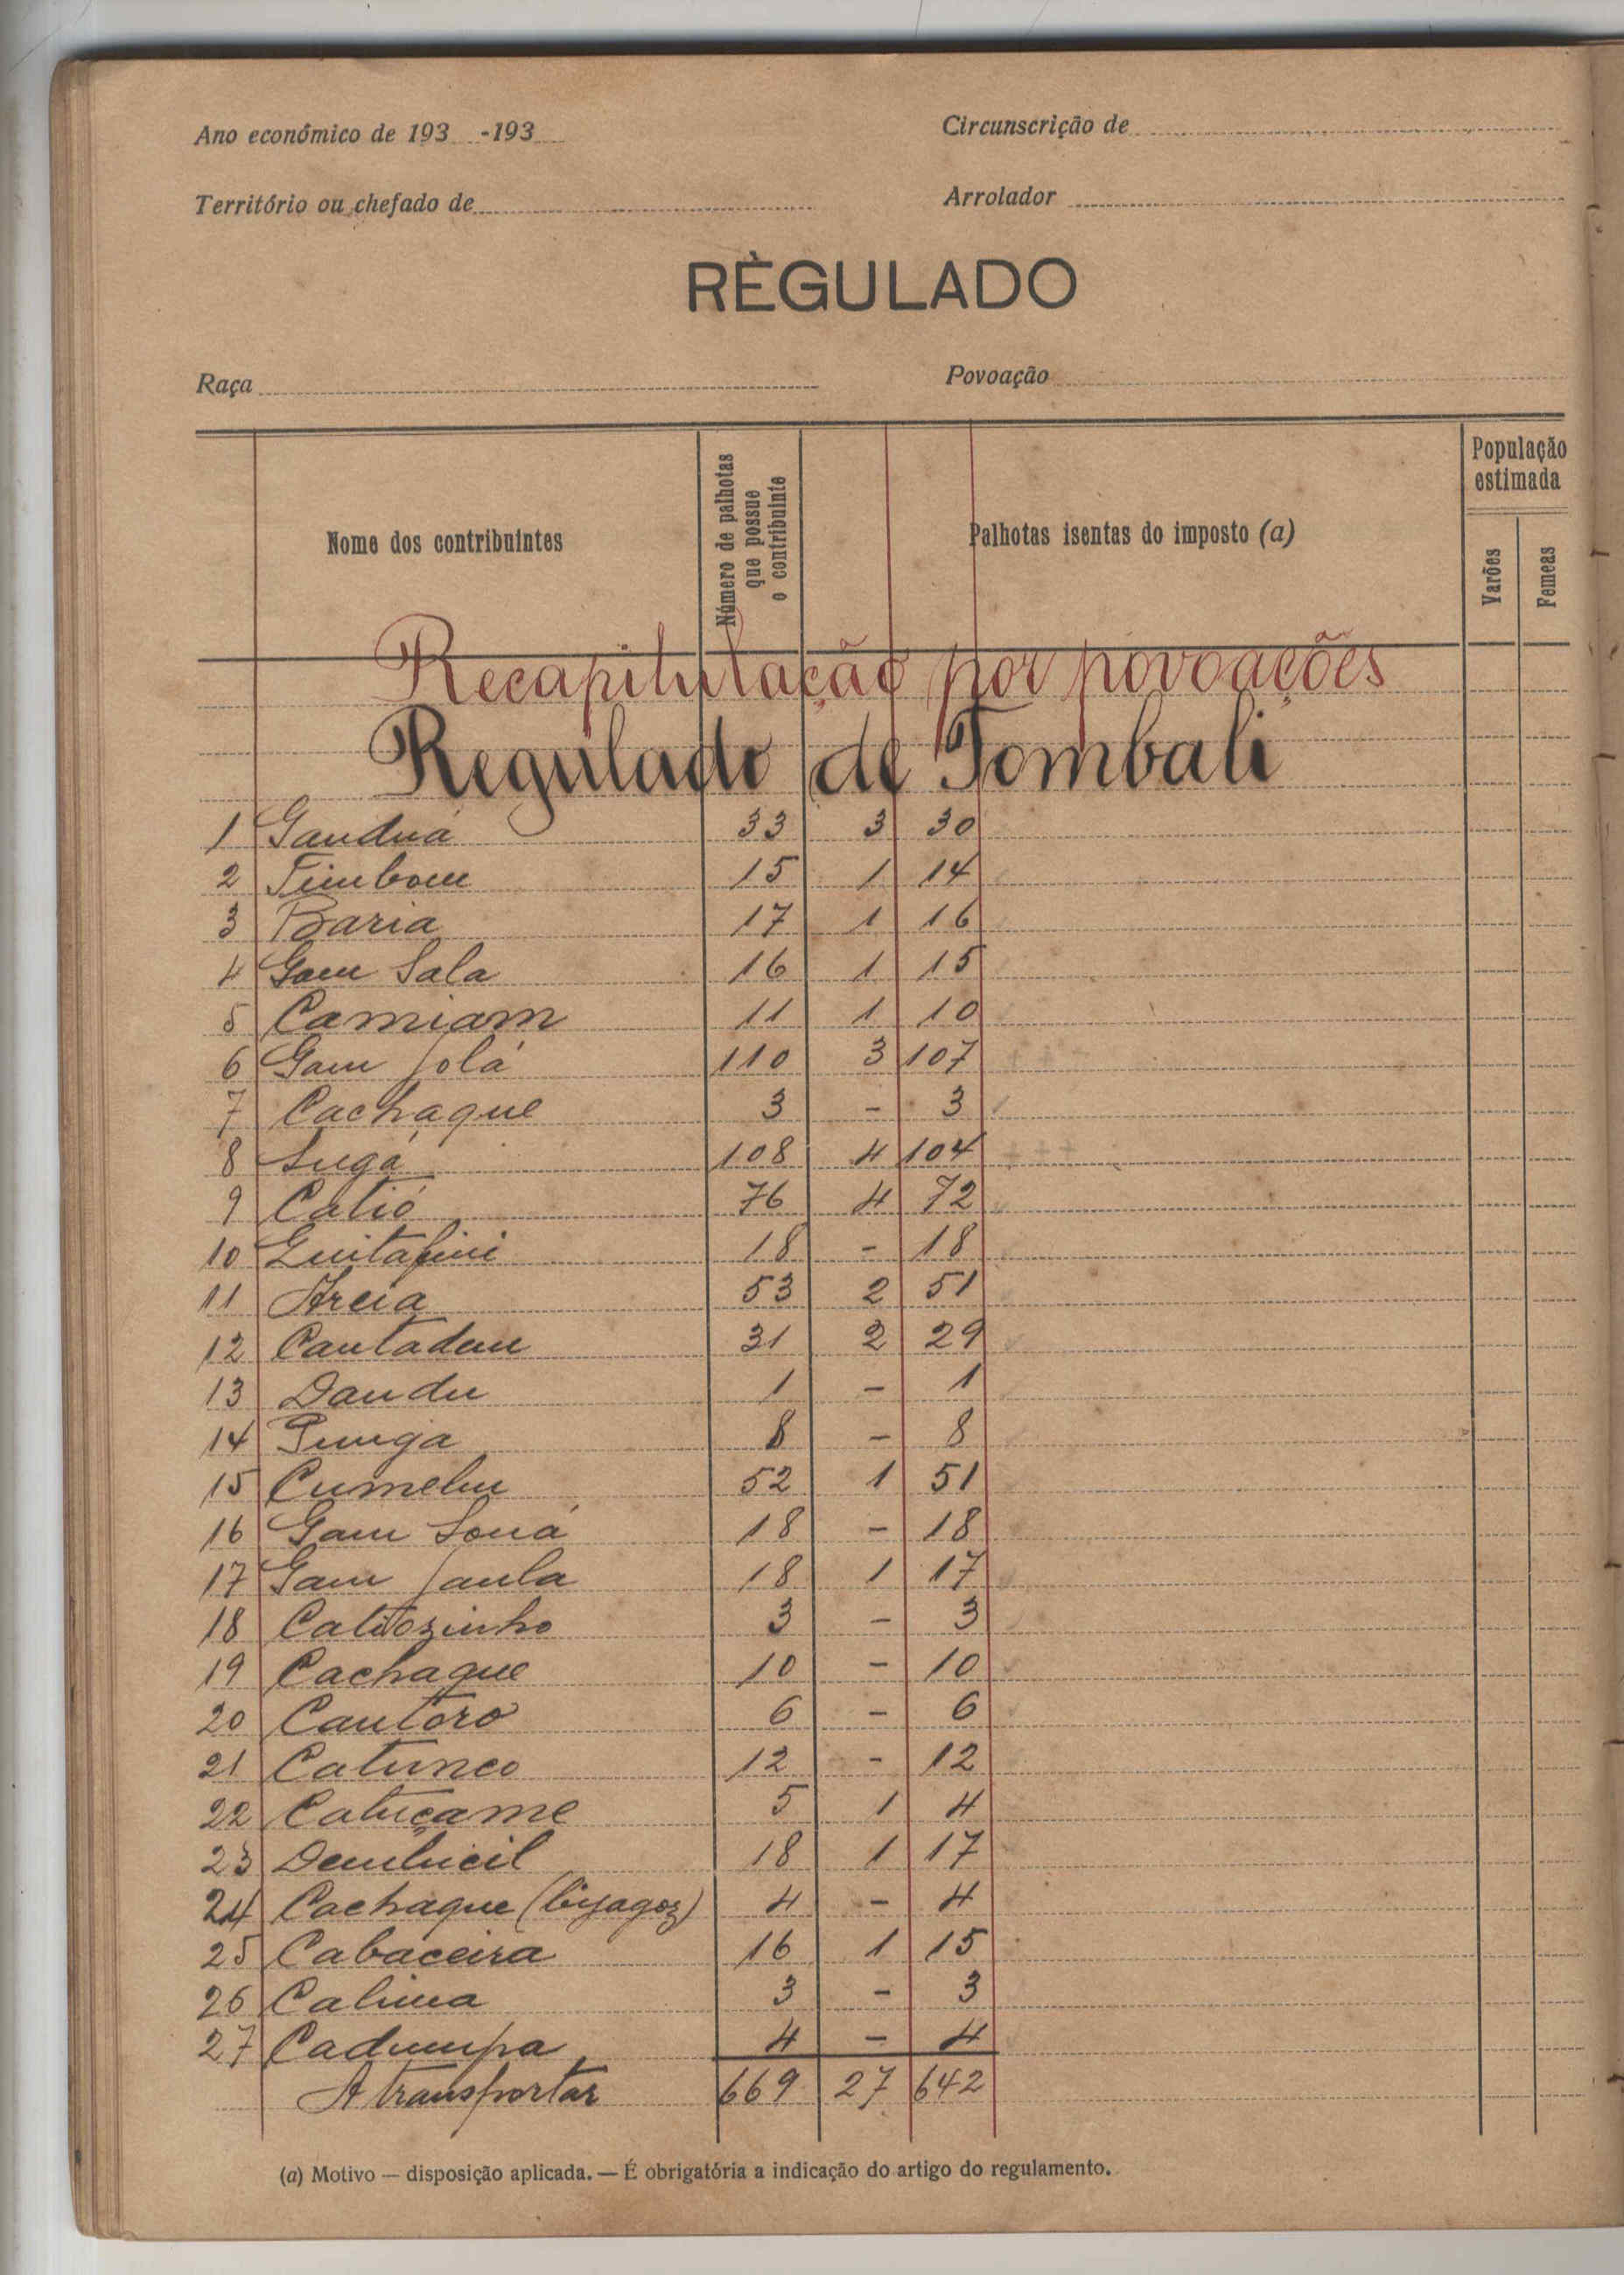 Ano económico de 193 -193
Circunscrição de
Território ou chefado de
Arrolador
RÈGULADO
Raça
Povoação
Nome dos contribuintes
Número de palhotas que possue o contribuinte
Palhotas isentas do imposto (a)
População estimada
Varões
Femeas
Recapitulação por povoações
Regulado de Tombali
1 Ganduá 33 3 30
2 Timbom 15 1 14
3 Baria 17 1 16
4 Gam Sala 16 1 15
5 Camiam 11 1 10
6 Gam Jolá 110 3 107
7 Cachaque 3 - 3
8 Sugá 108 4 104
9 Catió 76 4 72
10 Quitafini 18 - 18
11 Areia 53 2 51
12 Cantadem 31 2 29
13 Dandu 1 - 1
14 Punga 8 - 8
15 Cumebu 52 1 51
16 Gam Soná 18 - 18
17 Gam Jaula 18 1 17
18 Catiózinho 3 - 3
19 Cachaque 10 - 10
20 Cantoro 6 - 6
21 Catunco 12 - 12
22 Catuçame 5 1 4
23 Dembucil 18 1 17
24 Cachaque (bijagoz) 4 - 4
25 Cabaceira 16 1 15
26 Calima 3 - 3
27 Cadumpa 4 - 4
A transportar 669 27 642
(a) Motivo — disposição aplicada. — É obrigatória a indicação do artigo do regulamento.